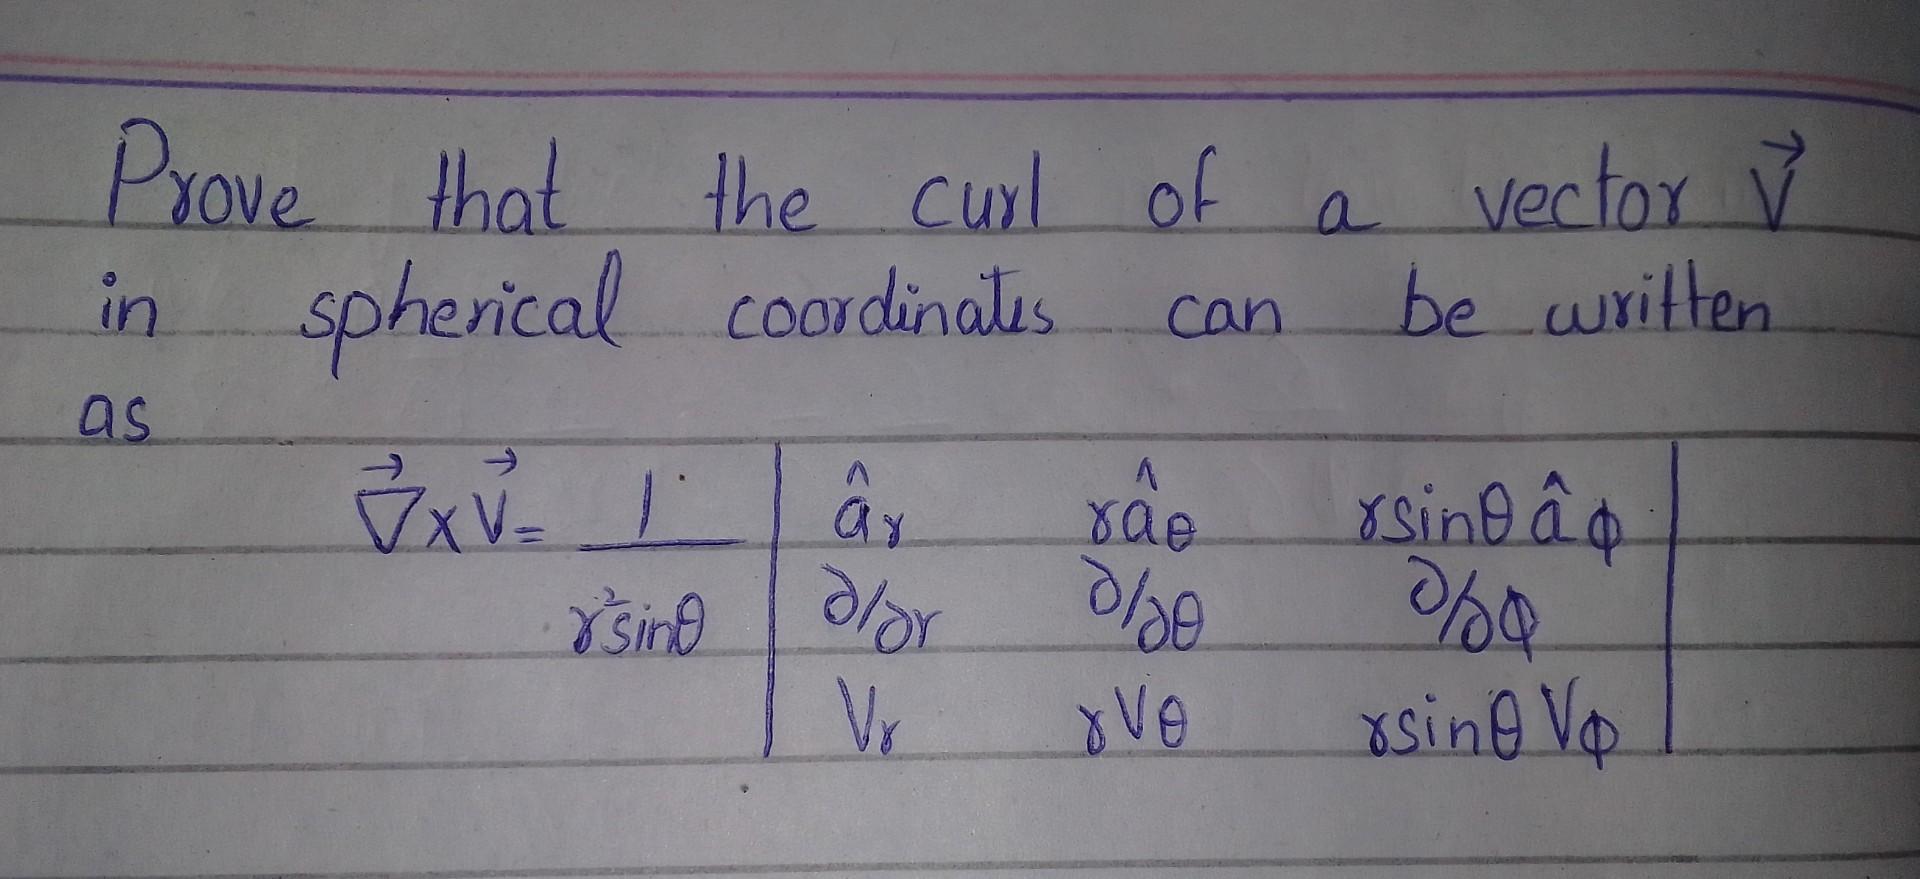 Prove that the curl of a vector V⃗
in spherical coordinates can be written
as
∇⃗ x V⃗ = 1 / r²sinθ | âr râθ rsinθ âφ |
| ∂/∂r ∂/∂θ ∂/∂φ |
| Vr rVθ rsinθ Vφ |